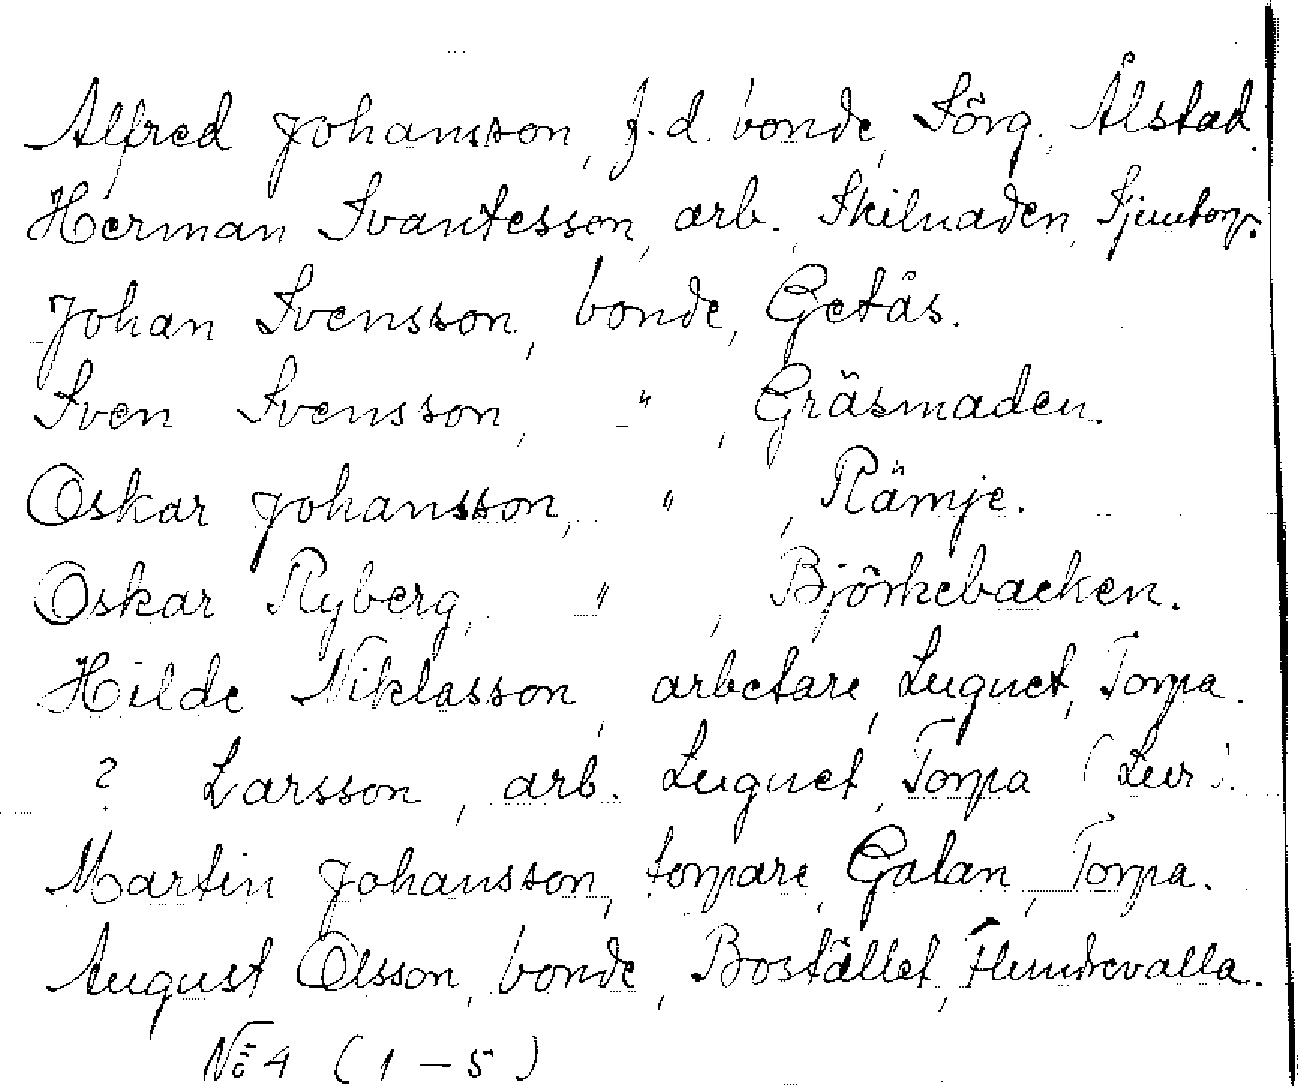 Alfred Johansson, f.d. bonde, Sörg. Ålstad.
Herman Svantesson, arb., Skilnaden, Sjuntorp.
Johan Svensson, bonde, Getås.
Sven Svensson, -"- , Gräsmaden.
Oskar Johansson, " , Rämje.
Oskar Ryberg, -"- , Björkebacken.
Hilde Niklasson, arbetare, Lugnet, Torpa.
? Larsson, arb. Lugnet, Torpa (Lur).
Martin Johansson, torpare, Galan, Torpa.
August Olsson, bonde, Bostället, Flundrevalla.
No 4 (1-5)